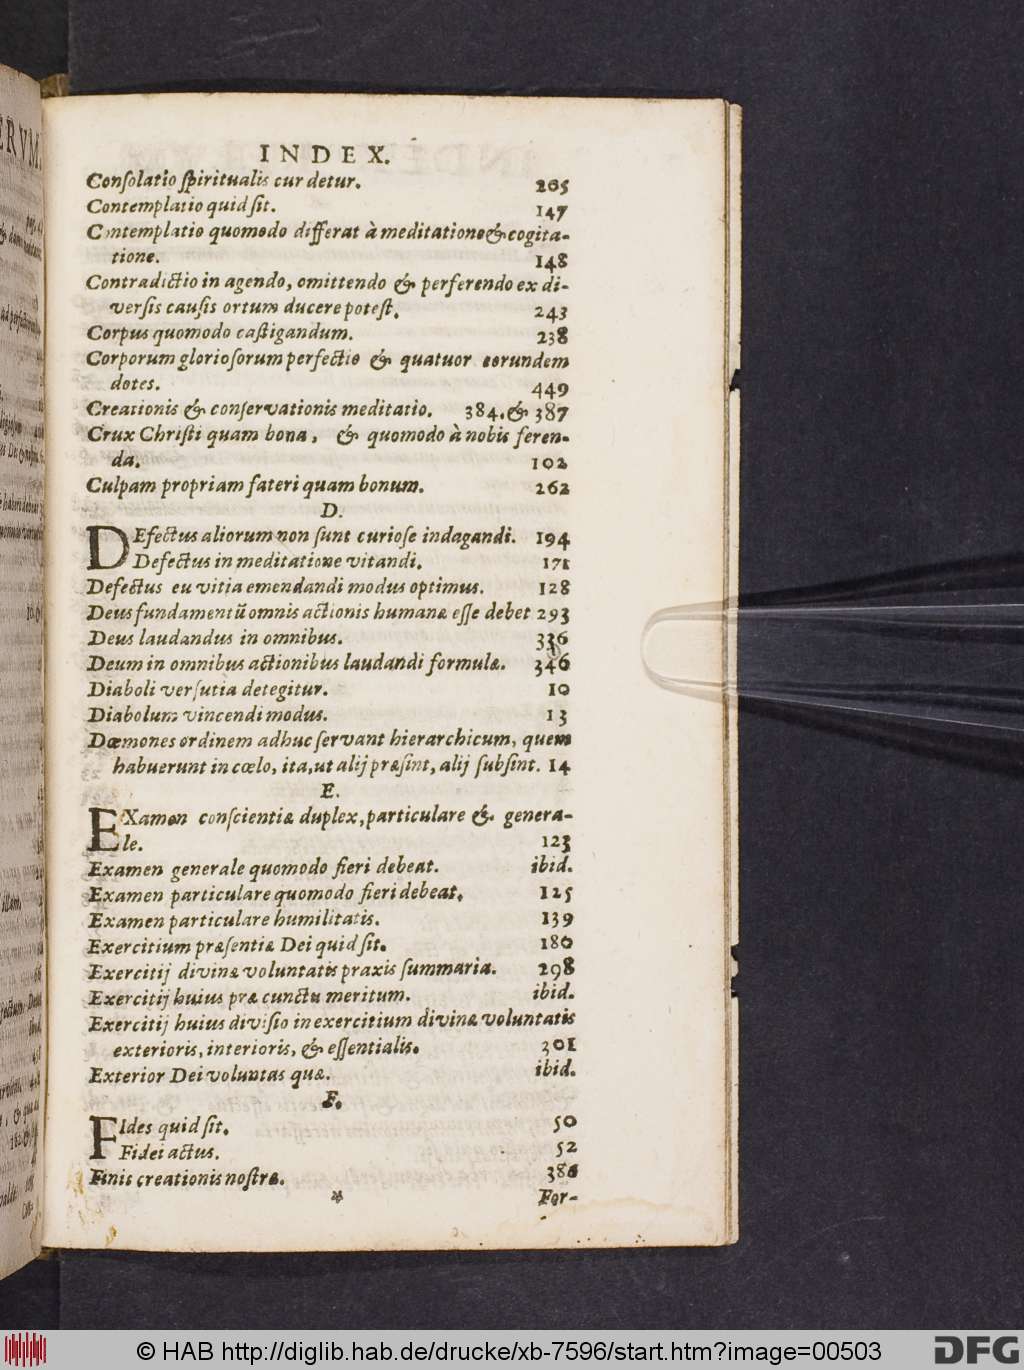 INDEX.
Conſolatio ſpiritualis cur detur. 205
Contemplatio quid ſit. 147
Contemplatio quomodo differat à meditatione & cogita-
tione. 148
Contradictio in agendo, omittendo & perferendo ex di-
verſis cauſis ortum ducere poteſt. 243
Corpus quomodo caſtigandum. 238
Corporum glorioſorum perfectio & quatuor eorundem
dotes. 449
Creationis & conſervationis meditatio. 384. & 387
Crux Chriſti quam bona, & quomodo à nobis feren-
da. 102
Culpam propriam fateri quam bonum. 262
D.
DEfectus aliorum non ſunt curioſe indagandi. 194
Defectus in meditatione vitandi. 171
Defectus eu vitia emendandi modus optimus. 128
Deus fundamentũ omnis actionis humanæ eſſe debet 293
Deus laudandus in omnibus. 336
Deum in omnibus actionibus laudandi formulæ. 346
Diaboli verſutia detegitur. 10
Diabolum vincendi modus. 13
Dœmones ordinem adhuc ſervant hierarchicum, quem
habuerunt in cœlo, ita, ut alij præſint, alij ſubſint. 14
E.
EXamen conſcientiæ duplex, particulare & genera-
le. 123
Examen generale quomodo fieri debeat. ibid.
Examen particulare quomodo fieri debeat. 125
Examen particulare humilitatis. 139
Exercitium præſentiæ Dei quid ſit. 180
Exercitij divinæ voluntatis praxis ſummaria. 298
Exercitij huius præ cunctis meritum. ibid.
Exercitij huius diviſio in exercitium divinæ voluntatis
exterioris, interioris, & eſſentialis. 301
Exterior Dei voluntas quæ. ibid.
F.
FIdes quid ſit. 50
Fidei actus. 52
Finis creationis noſtræ. 386
* For-
© HAB http://diglib.hab.de/drucke/xb-7596/start.htm?image=00503
DFG